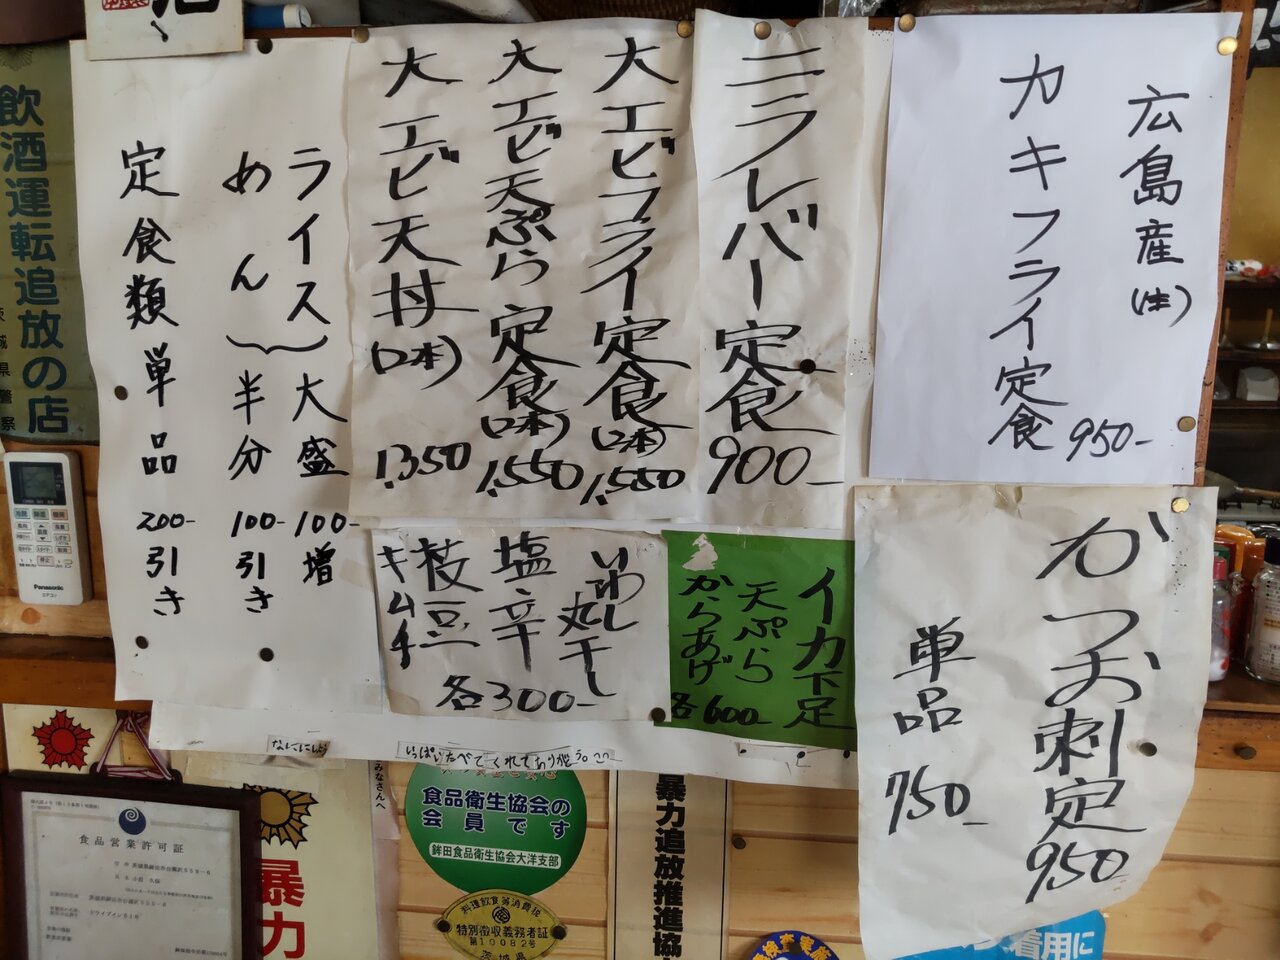 広島産(生)
カキフライ定食 950-
ニラレバー定食 900-
大エビフライ定食(2本) 1,550
大エビ天ぷら定食(2本) 1,550
大エビ天丼(2本) 1,350
ライス
めん
大盛 100-増
半分 100-引き
定食類単品 200-引き
かつお刺定 950-
単品 750-
イカ下足
天ぷら
からあげ
各600-
いわし丸干し
塩辛
枝豆
キムチ
各300-
なににしよう
いっぱいたべてくれてありがとう。
飲酒運転追放の店
茨城県警察
Panasonic
エアコン
食品営業許可証
みなさんへ
暴力
食品衛生協会の
会員です
鉾田食品衛生協会大洋支部
料理飲食等消費税
特別徴収義務者証
第10082号
茨城県
暴力追放推進協
着用に